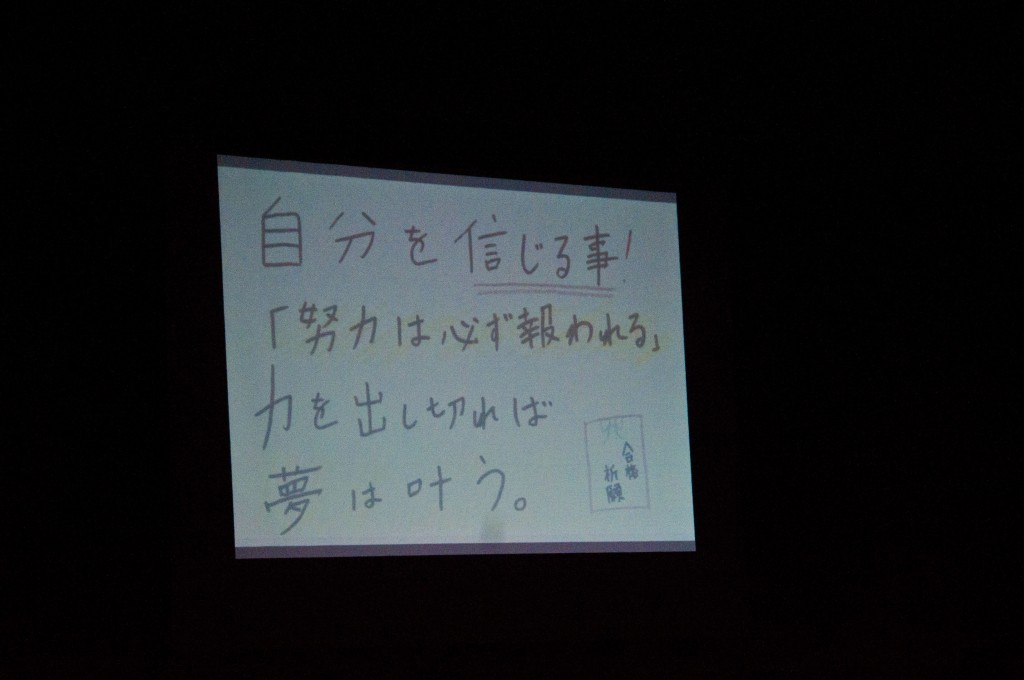 自分を信じる事!
「努力は必ず報われる」
力を出し切れば
夢は叶う。
合格
祈願